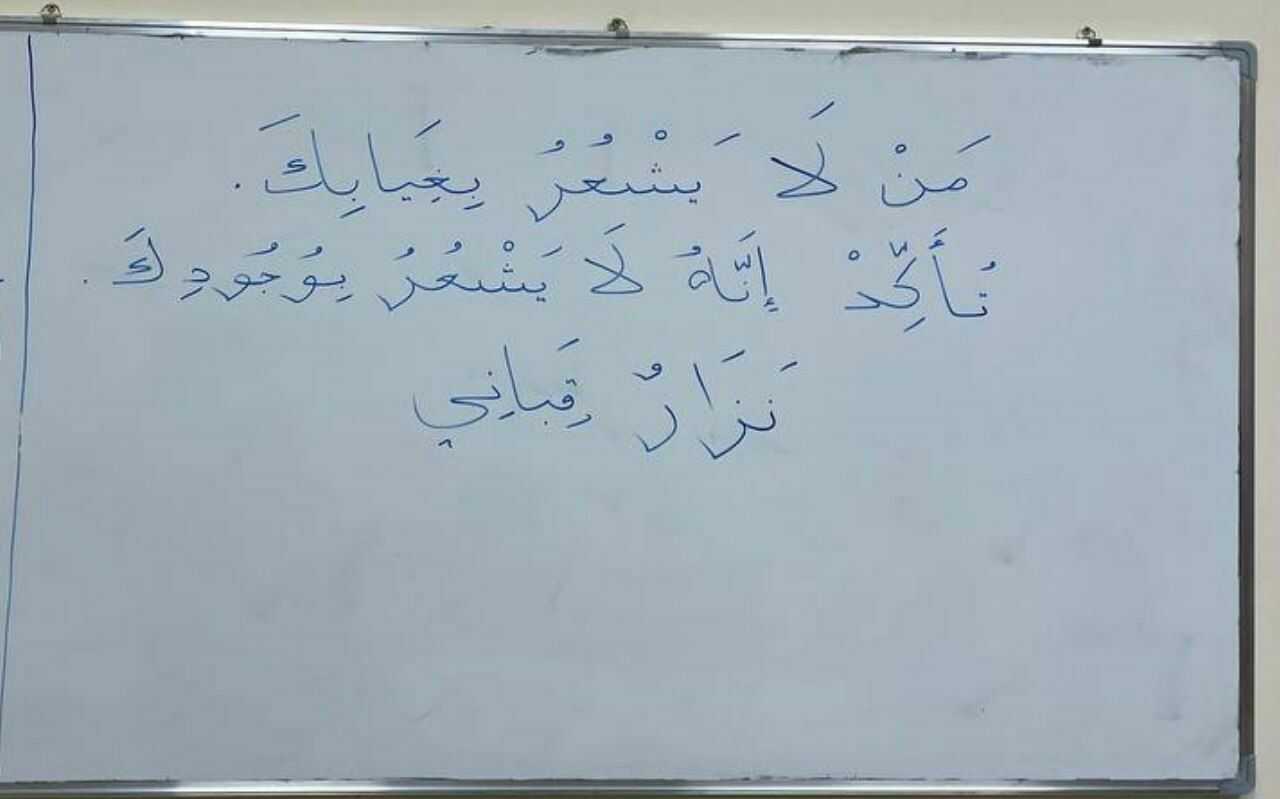 مَنْ لَا يَشْعُرُ بِغِيَابِكَ.
تُأَكِّدْ إِنَّهُ لَا يَشْعُرُ بِوُجُودِكَ.
نَزَارُ قِبَانِي